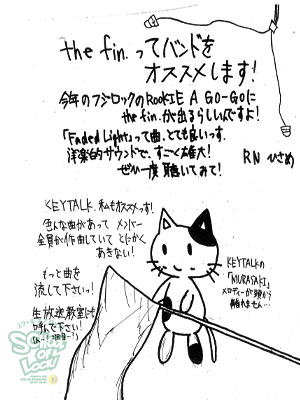 the fin.ってバンドを
オススメします!
今年のフジロックのROOKIE A GO-GOに
the fin.が出るらしいんですよ!
「Faded Light」って曲、とても良いっす。
洋楽的サウンドで、すごく雄大!
ぜひ一度 聴いてみて!
RN ひさめ
KEYTALK、私もオススメっす!
色んな曲があって メンバー
全員が作曲していて とにかく
あきない!
もっと曲を
流して下さいっ!
生放送教室にも
呼んで下さい!
KEYTALKの
「MURASAKI」
メロディーが頭から
離れません…
SCHOOL
OF
LOCK!